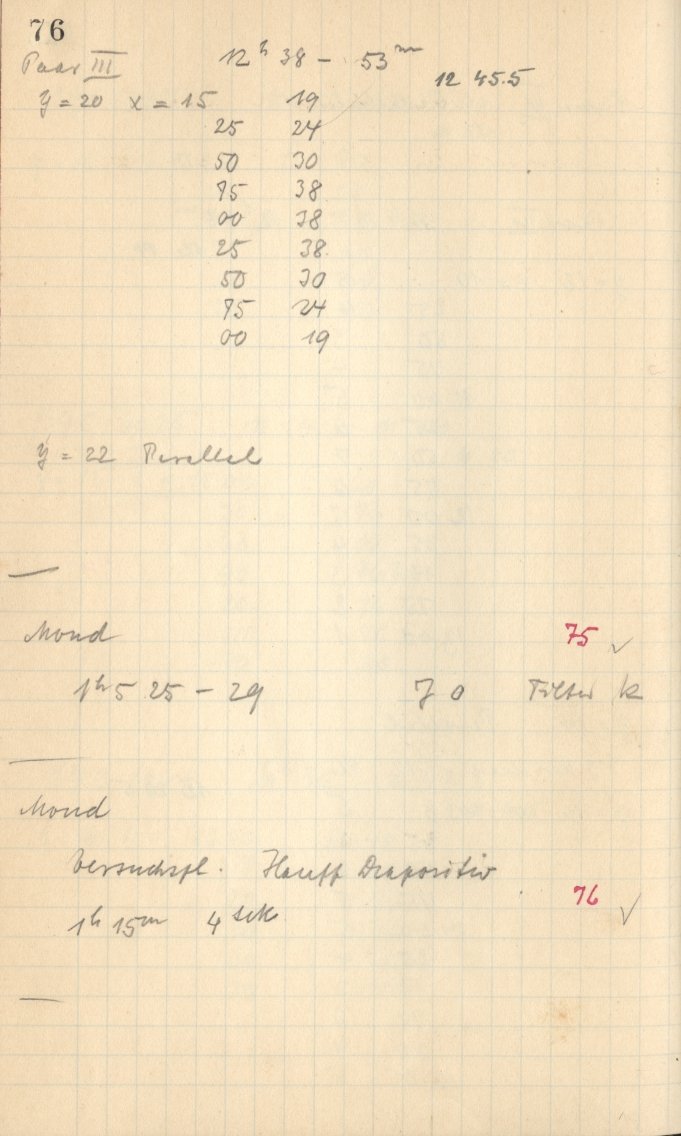 76
Paar III 12h 38 - 53m 12 45.5
y = 20 x = 15 19
25 24
50 30
75 38
00 38
25 38
50 30
75 24
00 19
y = 22 Parallel
Mond 75 ✓
1h 5 25 - 29 J 0 Filter k
Mond
Versuchspl. Hauff Diapositiv
76 ✓
1h 15m 4 sek